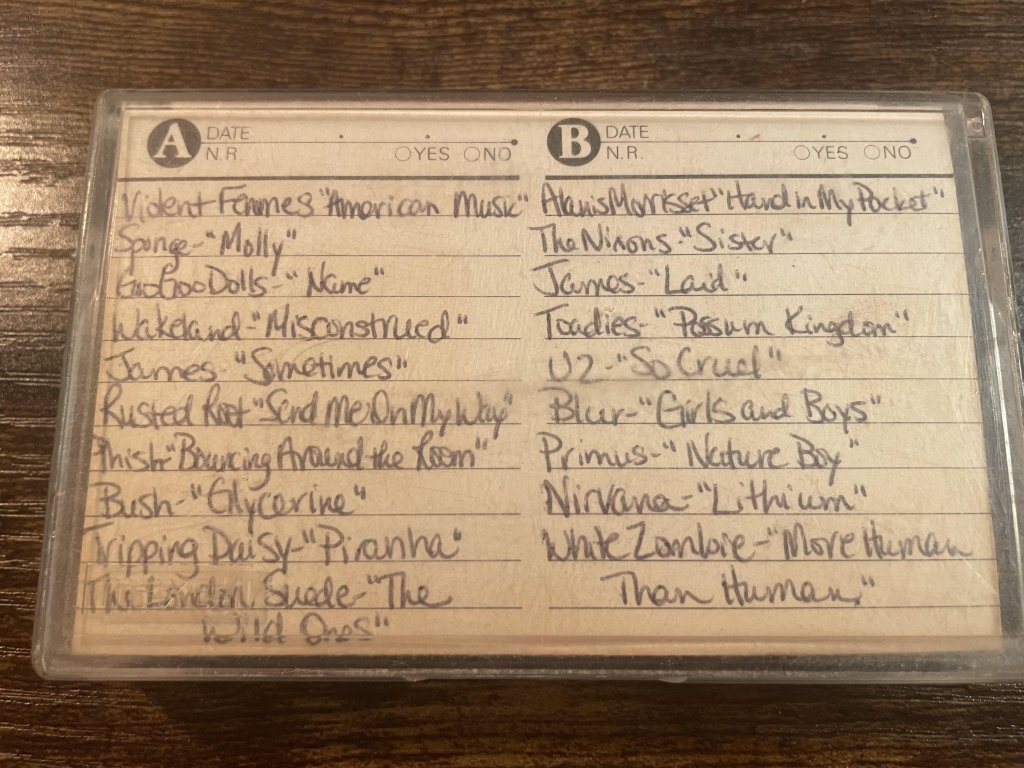 A DATE
N.R. YES NO
Violent Femmes "American Music"
Sponge-"Molly"
GooGooDolls-"Name"
Wakeland-"Misconstrued"
James-"Sometimes"
Rusted Root-"Send Me On My Way"
Phish-"Bouncing Around the Room"
Bush-"Glycerine"
Tripping Daisy-"Piranha"
The London Suede-"The
Wild Ones"
B DATE
N.R. YES NO
Alanis Morrisset "Hand in My Pocket"
The Nixons-"Sister"
James-"Laid"
Toadies-"Possum Kingdom"
U2-"So Cruel"
Blur-"Girls and Boys"
Primus-"Nature Boy"
Nirvana-"Lithium"
White Zombie-"More Human
Than Human"